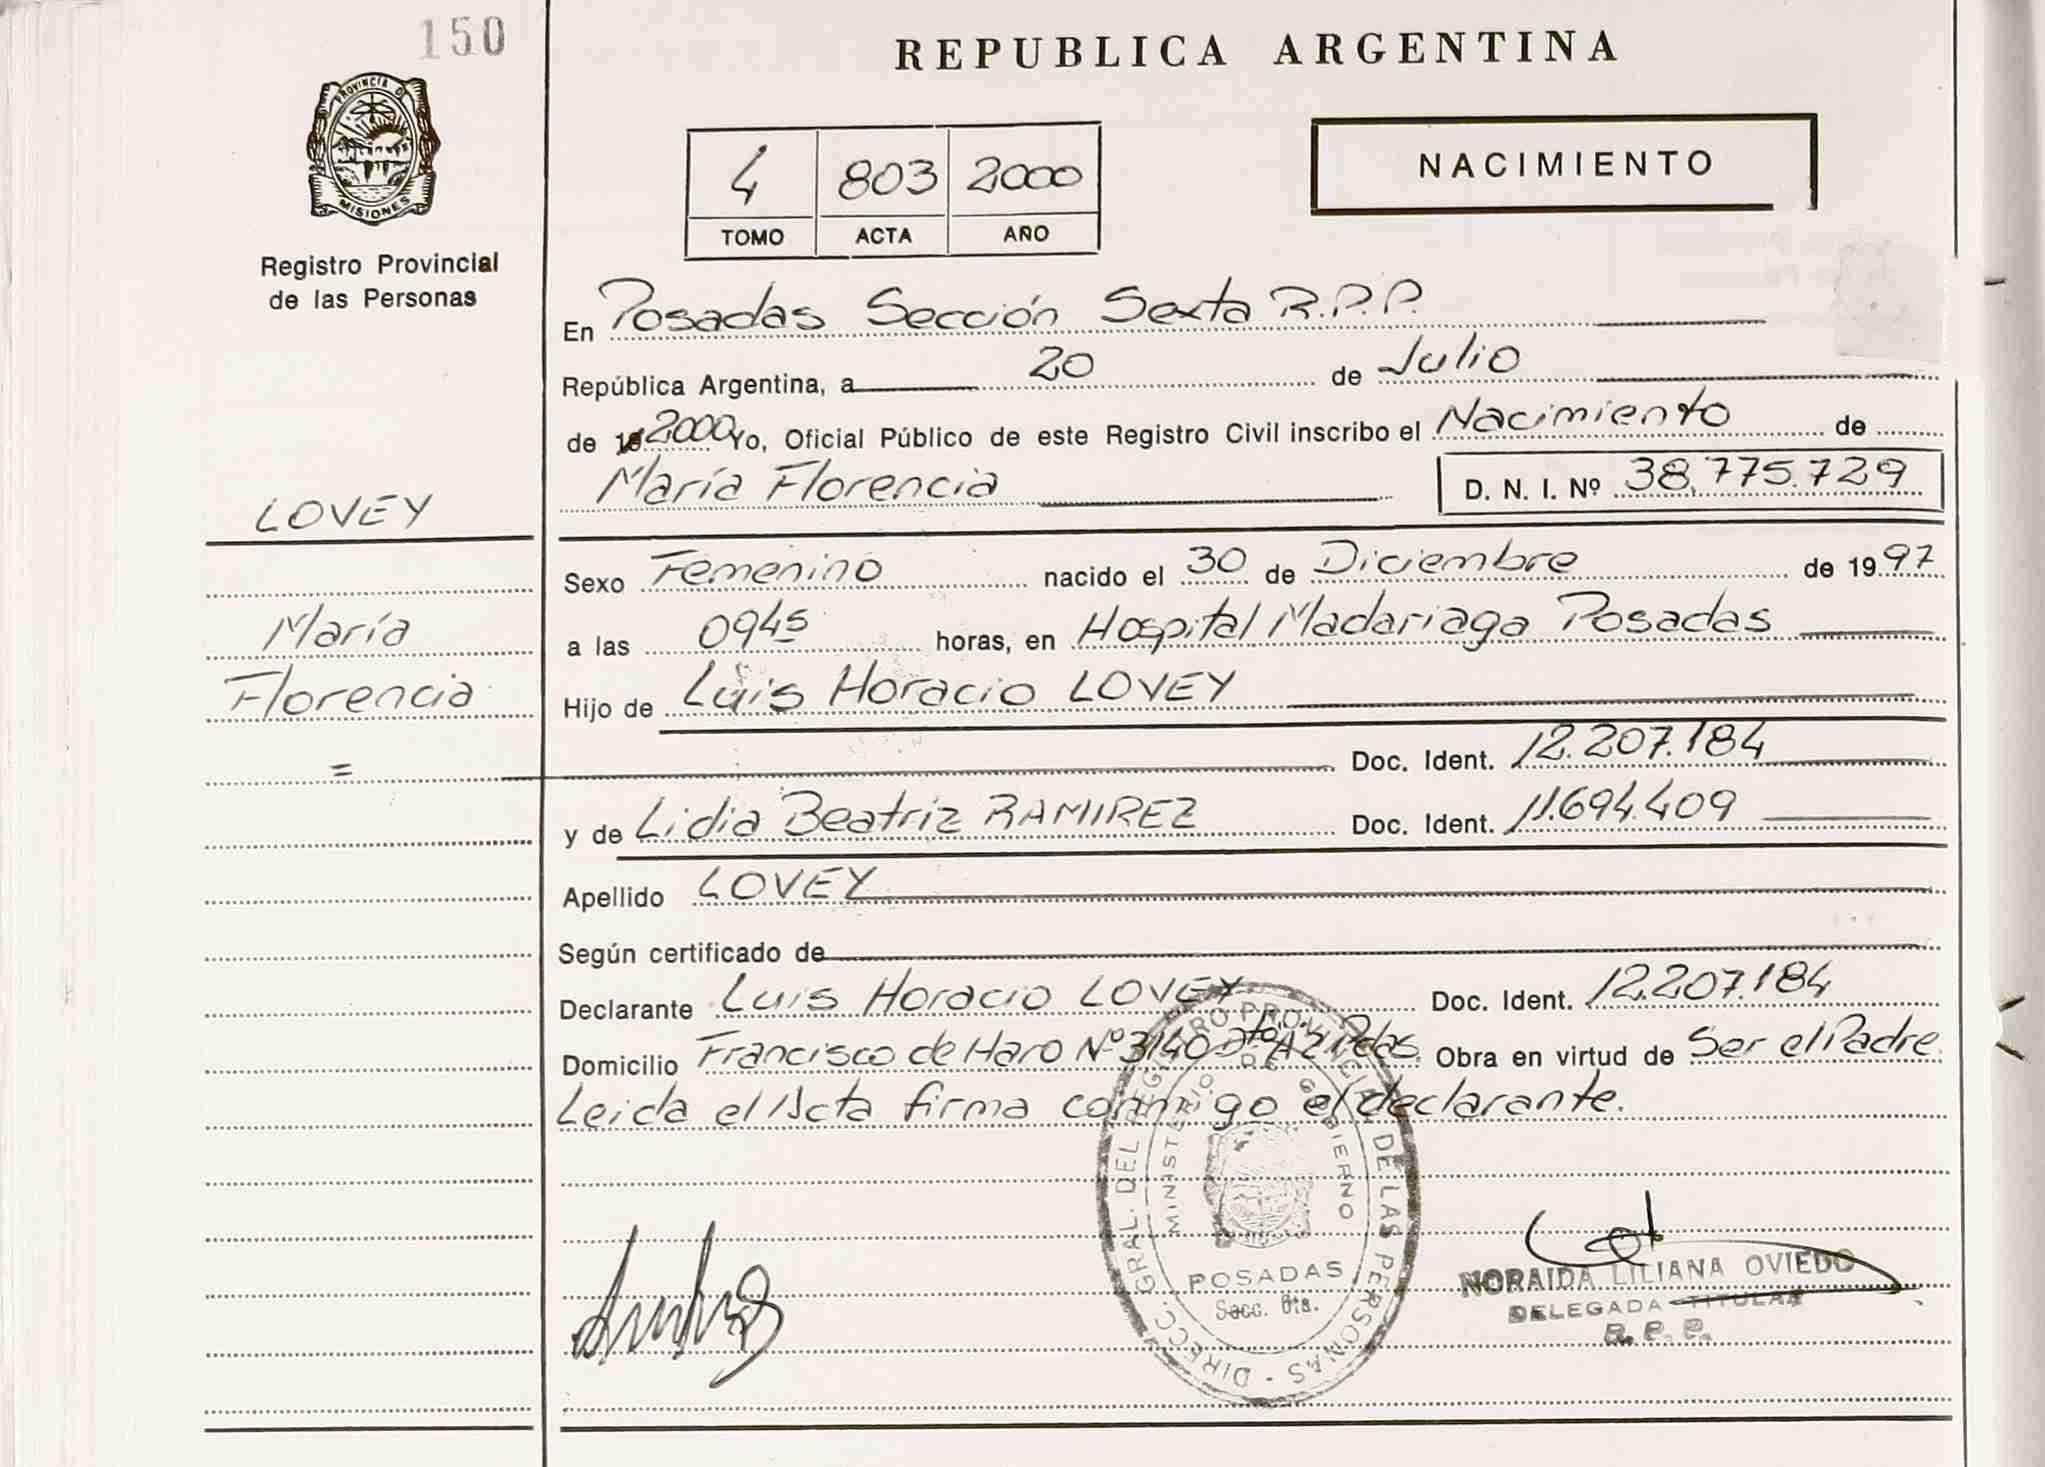 150
REPUBLICA ARGENTINA
PROVINCIA D
MISIONES
Registro Provincial
de las Personas
4 803 2000
TOMO ACTA AÑO
NACIMIENTO
En Posadas Sección Sexta R.P.P.
República Argentina, a 20 de Julio
de 2000 Yo, Oficial Público de este Registro Civil inscribo el Nacimiento de
María Florencia D. N. I. Nº 38.775.729
LOVEY
María
Florencia
=
Sexo Femenino nacido el 30 de Diciembre de 1997
a las 0945 horas, en Hospital Madariaga Posadas
Hijo de Luis Horacio LOVEY
Doc. Ident. 12.207.184
y de Lidia Beatriz RAMIREZ Doc. Ident. 11.694.409
Apellido LOVEY
Según certificado de
Declarante Luis Horacio LOVEY Doc. Ident. 12.207.184
Domicilio Francisco de Haro Nº 3140 Dto A21 Pdas. Obra en virtud de Ser el Padre.
Leida el Acta firma conmigo el declarante.
DIRECC. GRAL. DEL REGISTRO PROVINCIAL DE LAS PERSONAS -
MINISTERIO DE GOBIERNO
POSADAS
Secc. 6ta.
NORAIDA LILIANA OVIEDO
DELEGADA TITULAR
R. P. P.